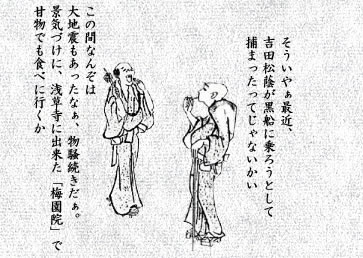 そういやぁ最近、
吉田松蔭が黒船に乗ろうとして
捕まったってじゃないかい
この間なんぞは
大地震もあったなぁ、物騒続きだぁ。
景気づけに、浅草寺に出来た「梅園院」で
甘物でも食べに行くか